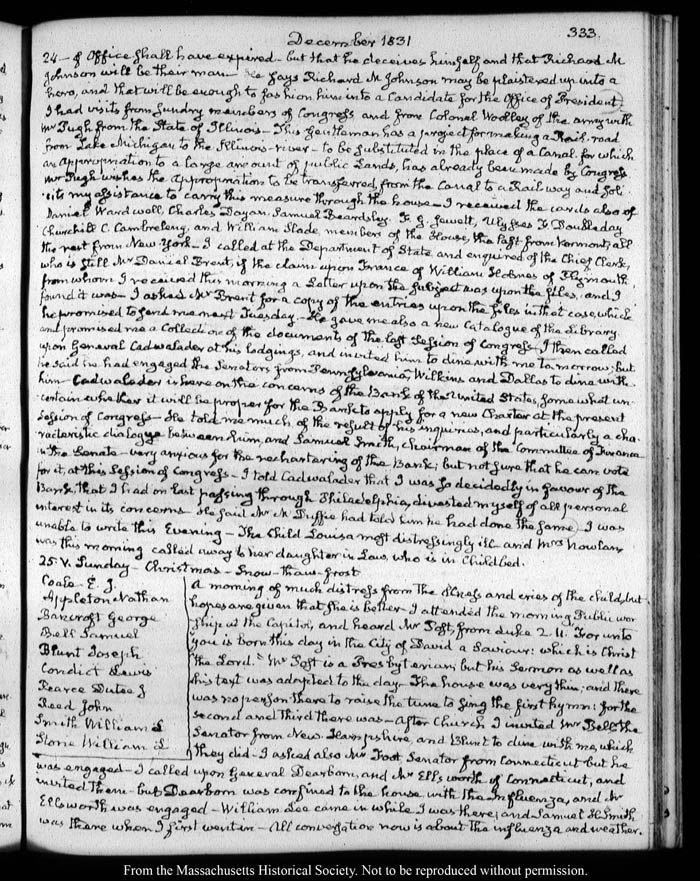 December 1831
333.
24 — of Office shall have expired — but that he deceives himself and that Richard M
Johnson will be their man — He says Richard M Johnson may be plaistered up into a
hero, and that will be enough to fashion him into a Candidate for the Office of President
I had visits from sundry members of Congress and from Colonel Woolley of the army with
Mr Pugh from the State of Illinois — This Gentleman has a project for making a Rail-road
from Lake Michigan to the Illinois river — to be substituted in the place of a Canal for which
an appropriation to a large amount of public Lands, has already been made by Congress
Mr Pugh wishes the appropriation to be transferred, from the Canal to a Railway and soli-
cits my assistance to carry this measure through the house — I received the cards also of
Daniel Wardwell, Charles Dayan, Samuel Beardsley, F. G. Jewett, Ulysses F. Doubleday
Churchill C. Cambreleng, and William Slade members of the House, the last from Vermont, all
the rest from New York — I called at the Department of State, and enquired of the Chief Clerk,
who is still Mr Daniel Brent, if the claim upon France of William Holmes of Plymouth,
from whom I received this morning a Letter upon the subject was upon the files, and I
found it was — I asked Mr Brent for a copy of the entries upon the files in that case, which
he promised to send me next Tuesday — He gave me also a new Catalogue of the Library
and promised me a Collection of the documents of the last Session of Congress — I then called
upon General Cadwalader at his lodgings, and invited him to dine with me to-morrow; but
he said he had engaged the Senators from Pennsylvania, Wilkins and Dallas to dine with
him — Cadwalader is here on the concerns of the Bank of the United States, somewhat un-
certain whether it will be proper for the Bank to apply for a new Charter at the present
Session of Congress — He told me much, of the result of his inquiries, and particularly a cha-
racteristic dialogue between him, and Samuel Smith, Chairman of the Committee of Finance
in the Senate — very anxious for the rechartering of the Bank; but not sure that he can vote
for it, at this Session of Congress — I told Cadwalader that I was so decidedly in favour of the
Bank, that I had on last passing through Philadelphia, divested myself of all personal
interest in its concerns — He said Mr McDuffie had told him he had done the same — I was
unable to write this Evening — The Child Louisa most distressingly ill and Mrs Nowlan,
was this morning called away to her daughter in Law, who is in Childbed.
25. V. Sunday — Christmas — Snow — thaw — frost
Coale E. J.
Appleton Nathan
Bancroft George
Bell Samuel
Blunt Joseph
Condict Lewis
Pearce Dutee J
Reed John
Smith William L
Stone William L
A morning of much distress from the illness and cries of the child, but
hopes are given that she is better — I attended the morning Public wor-
ship at the Capitol, and heard Mr Post, from Luke 2. 11. For unto
"you is born this day in the City of David a Saviour: which is Christ
"the Lord." Mr Post is a Presbyterian; but his Sermon as well as
his text was adapted to the day — The house was very thin; and there
was no person there to raise the tune to sing the first hymn: for the
second and third there was — After Church I invited Mr Bell the
Senator from New Hampshire, and Blunt to dine with me, which
they did — I asked also Mr Foot, Senator from Connecticut but he
was engaged — I called upon General Dearborn, and Mr Ellsworth of Connecticut, and
invited them — but Dearborn was confined to the house with the Influenza, and Mr
Ellsworth was engaged — William Lee came in while I was there; and Samuel H. Smith
was there when I first went in — All conversation now is about the influenza and weather.
From the Massachusetts Historical Society. Not to be reproduced without permission.